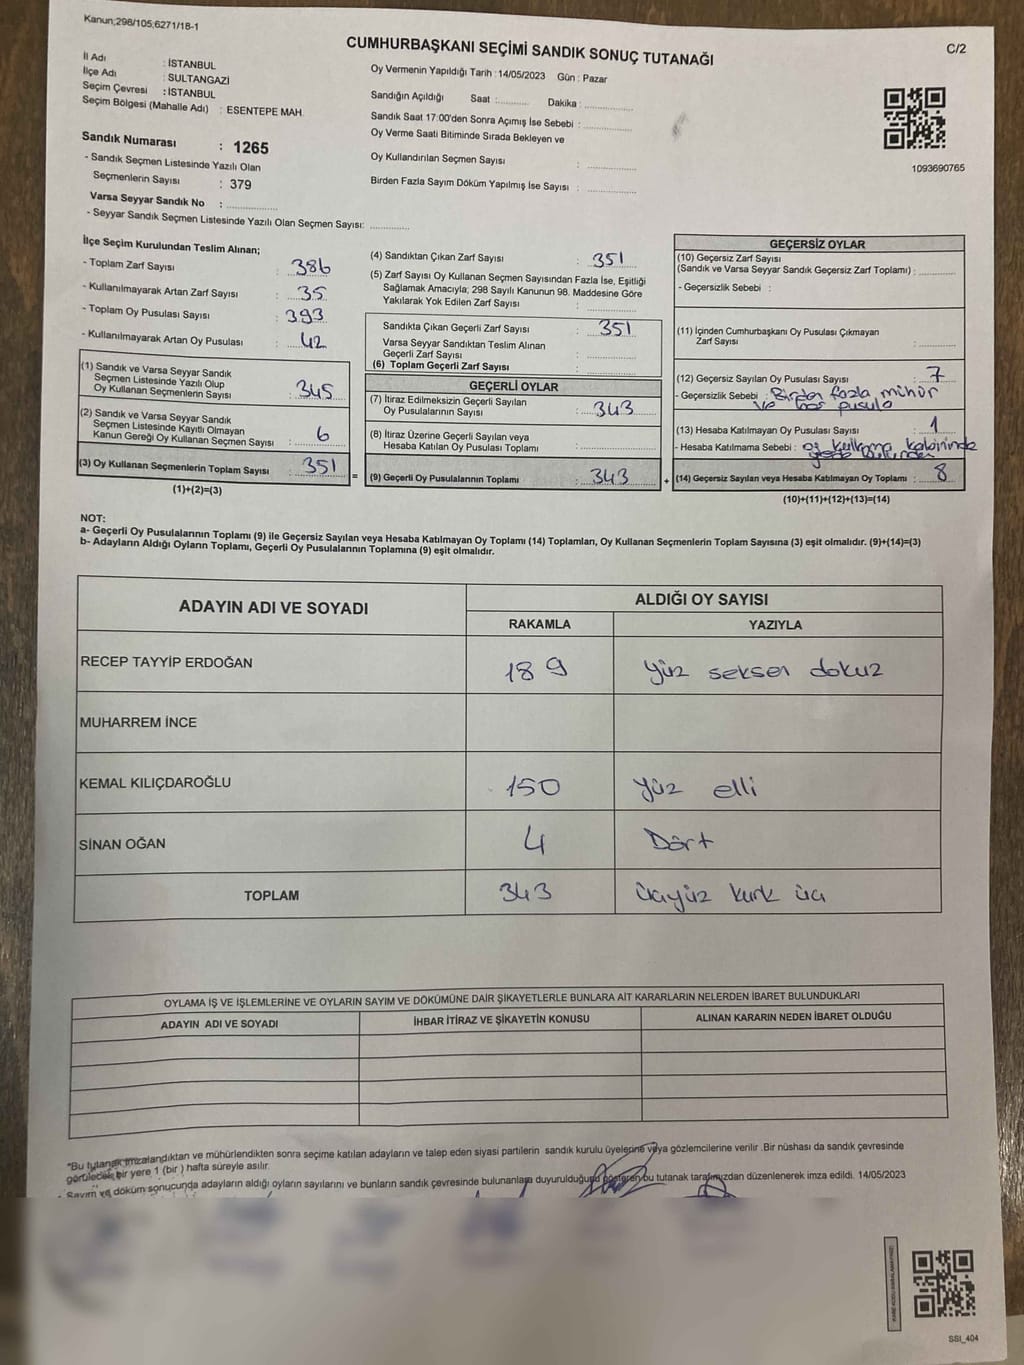 Kanun;298/105;6271/18-1
C/2
CUMHURBAŞKANI SEÇİMİ SANDIK SONUÇ TUTANAĞI
İl Adı : İSTANBUL
İlçe Adı : SULTANGAZİ
Seçim Çevresi : İSTANBUL
Seçim Bölgesi (Mahalle Adı) : ESENTEPE MAH.
Sandık Numarası : 1265
- Sandık Seçmen Listesinde Yazılı Olan
Seçmenlerin Sayısı : 379
Varsa Seyyar Sandık No :
- Seyyar Sandık Seçmen Listesinde Yazılı Olan Seçmen Sayısı:
Oy Vermenin Yapıldığı Tarih : 14/05/2023 Gün : Pazar
Sandığın Açıldığı Saat : Dakika :
Sandık Saat 17:00'den Sonra Açımış İse Sebebi :
Oy Verme Saati Bitiminde Sırada Bekleyen ve
Oy Kullandırılan Seçmen Sayısı :
Birden Fazla Sayım Döküm Yapılmış İse Sayısı :
1093690765
İlçe Seçim Kurulundan Teslim Alınan;
- Toplam Zarf Sayısı : 386
- Kullanılmayarak Artan Zarf Sayısı : 35
- Toplam Oy Pusulası Sayısı : 393
- Kullanılmayarak Artan Oy Pusulası : 42
(1) Sandık ve Varsa Seyyar Sandık
Seçmen Listesinde Yazılı Olup
Oy Kullanan Seçmenlerin Sayısı : 345
(2) Sandık ve Varsa Seyyar Sandık
Seçmen Listesinde Kayıtlı Olmayan
Kanun Gereği Oy Kullanan Seçmen Sayısı : 6
(3) Oy Kullanan Seçmenlerin Toplam Sayısı : 351
(1)+(2)=(3)
(4) Sandıktan Çıkan Zarf Sayısı : 351
(5) Zarf Sayısı Oy Kullanan Seçmen Sayısından Fazla İse, Eşitliği
Sağlamak Amacıyla; 298 Sayılı Kanunun 98. Maddesine Göre
Yakılarak Yok Edilen Zarf Sayısı :
Sandıkta Çıkan Geçerli Zarf Sayısı : 351
Varsa Seyyar Sandıktan Teslim Alınan
Geçerli Zarf Sayısı :
(6) Toplam Geçerli Zarf Sayısı :
GEÇERLİ OYLAR
(7) İtiraz Edilmeksizin Geçerli Sayılan
Oy Pusulalarının Sayısı : 343
(8) İtiraz Üzerine Geçerli Sayılan veya
Hesaba Katılan Oy Pusulası Toplamı :
= (9) Geçerli Oy Pusulalarının Toplamı : 343 +
GEÇERSİZ OYLAR
(10) Geçersiz Zarf Sayısı
(Sandık ve Varsa Seyyar Sandık Geçersiz Zarf Toplamı) :
- Geçersizlik Sebebi :
(11) İçinden Cumhurbaşkanı Oy Pusulası Çıkmayan
Zarf Sayısı :
(12) Geçersiz Sayılan Oy Pusulası Sayısı : 7
- Geçersizlik Sebebi : Birden fazla mühür
ve boş pusula
(13) Hesaba Katılmayan Oy Pusulası Sayısı : 1
- Hesaba Katılmama Sebebi : oy kullanma kabininde
(14) Geçersiz Sayılan veya Hesaba Katılmayan Oy Toplamı : 8
(10)+(11)+(12)+(13)=(14)
NOT:
a- Geçerli Oy Pusulalarının Toplamı (9) ile Geçersiz Sayılan veya Hesaba Katılmayan Oy Toplamı (14) Toplamları, Oy Kullanan Seçmenlerin Toplam Sayısına (3) eşit olmalıdır. (9)+(14)=(3)
b- Adayların Aldığı Oyların Toplamı, Geçerli Oy Pusulalarının Toplamına (9) eşit olmalıdır.
ADAYIN ADI VE SOYADI
ALDIĞI OY SAYISI
RAKAMLA YAZIYLA
RECEP TAYYİP ERDOĞAN 189 Yüz seksen dokuz
MUHARREM İNCE
KEMAL KILIÇDAROĞLU 150 Yüz elli
SİNAN OĞAN 4 Dört
TOPLAM 343 üçyüz kırk üç
OYLAMA İŞ VE İŞLEMLERİNE VE OYLARIN SAYIM VE DÖKÜMÜNE DAİR ŞİKAYETLERLE BUNLARA AİT KARARLARIN NELERDEN İBARET BULUNDUKLARI
ADAYIN ADI VE SOYADI İHBAR İTİRAZ VE ŞİKAYETİN KONUSU ALINAN KARARIN NEDEN İBARET OLDUĞU
*Bu tutanak imzalandıktan ve mühürlendikten sonra seçime katılan adayların ve talep eden siyasi partilerin sandık kurulu üyelerine veya gözlemcilerine verilir .Bir nüshası da sandık çevresinde
görülecek bir yere 1 (bir ) hafta süreyle asılır.
* Sayım ve döküm sonucunda adayların aldığı oyların sayılarını ve bunların sandık çevresinde bulunanlara duyurulduğunu gösteren bu tutanak tarafımızdan düzenlenerek imza edildi. 14/05/2023
SSI_404